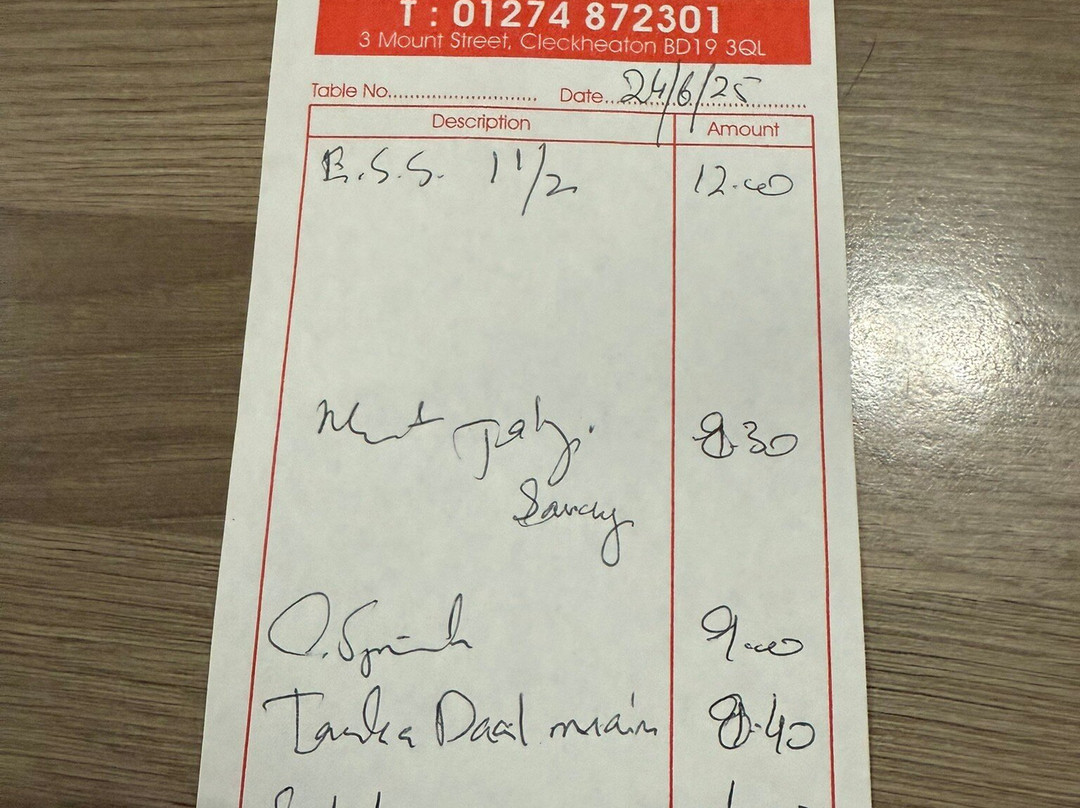 T : 01274 872301
3 Mount Street, Cleckheaton BD19 3QL
Table No. Date 24/6/25
Description Amount
B.S.S. 1 1/2 12.00
8.30
O. Spinach 9.00
Tarka Daal main 8.40